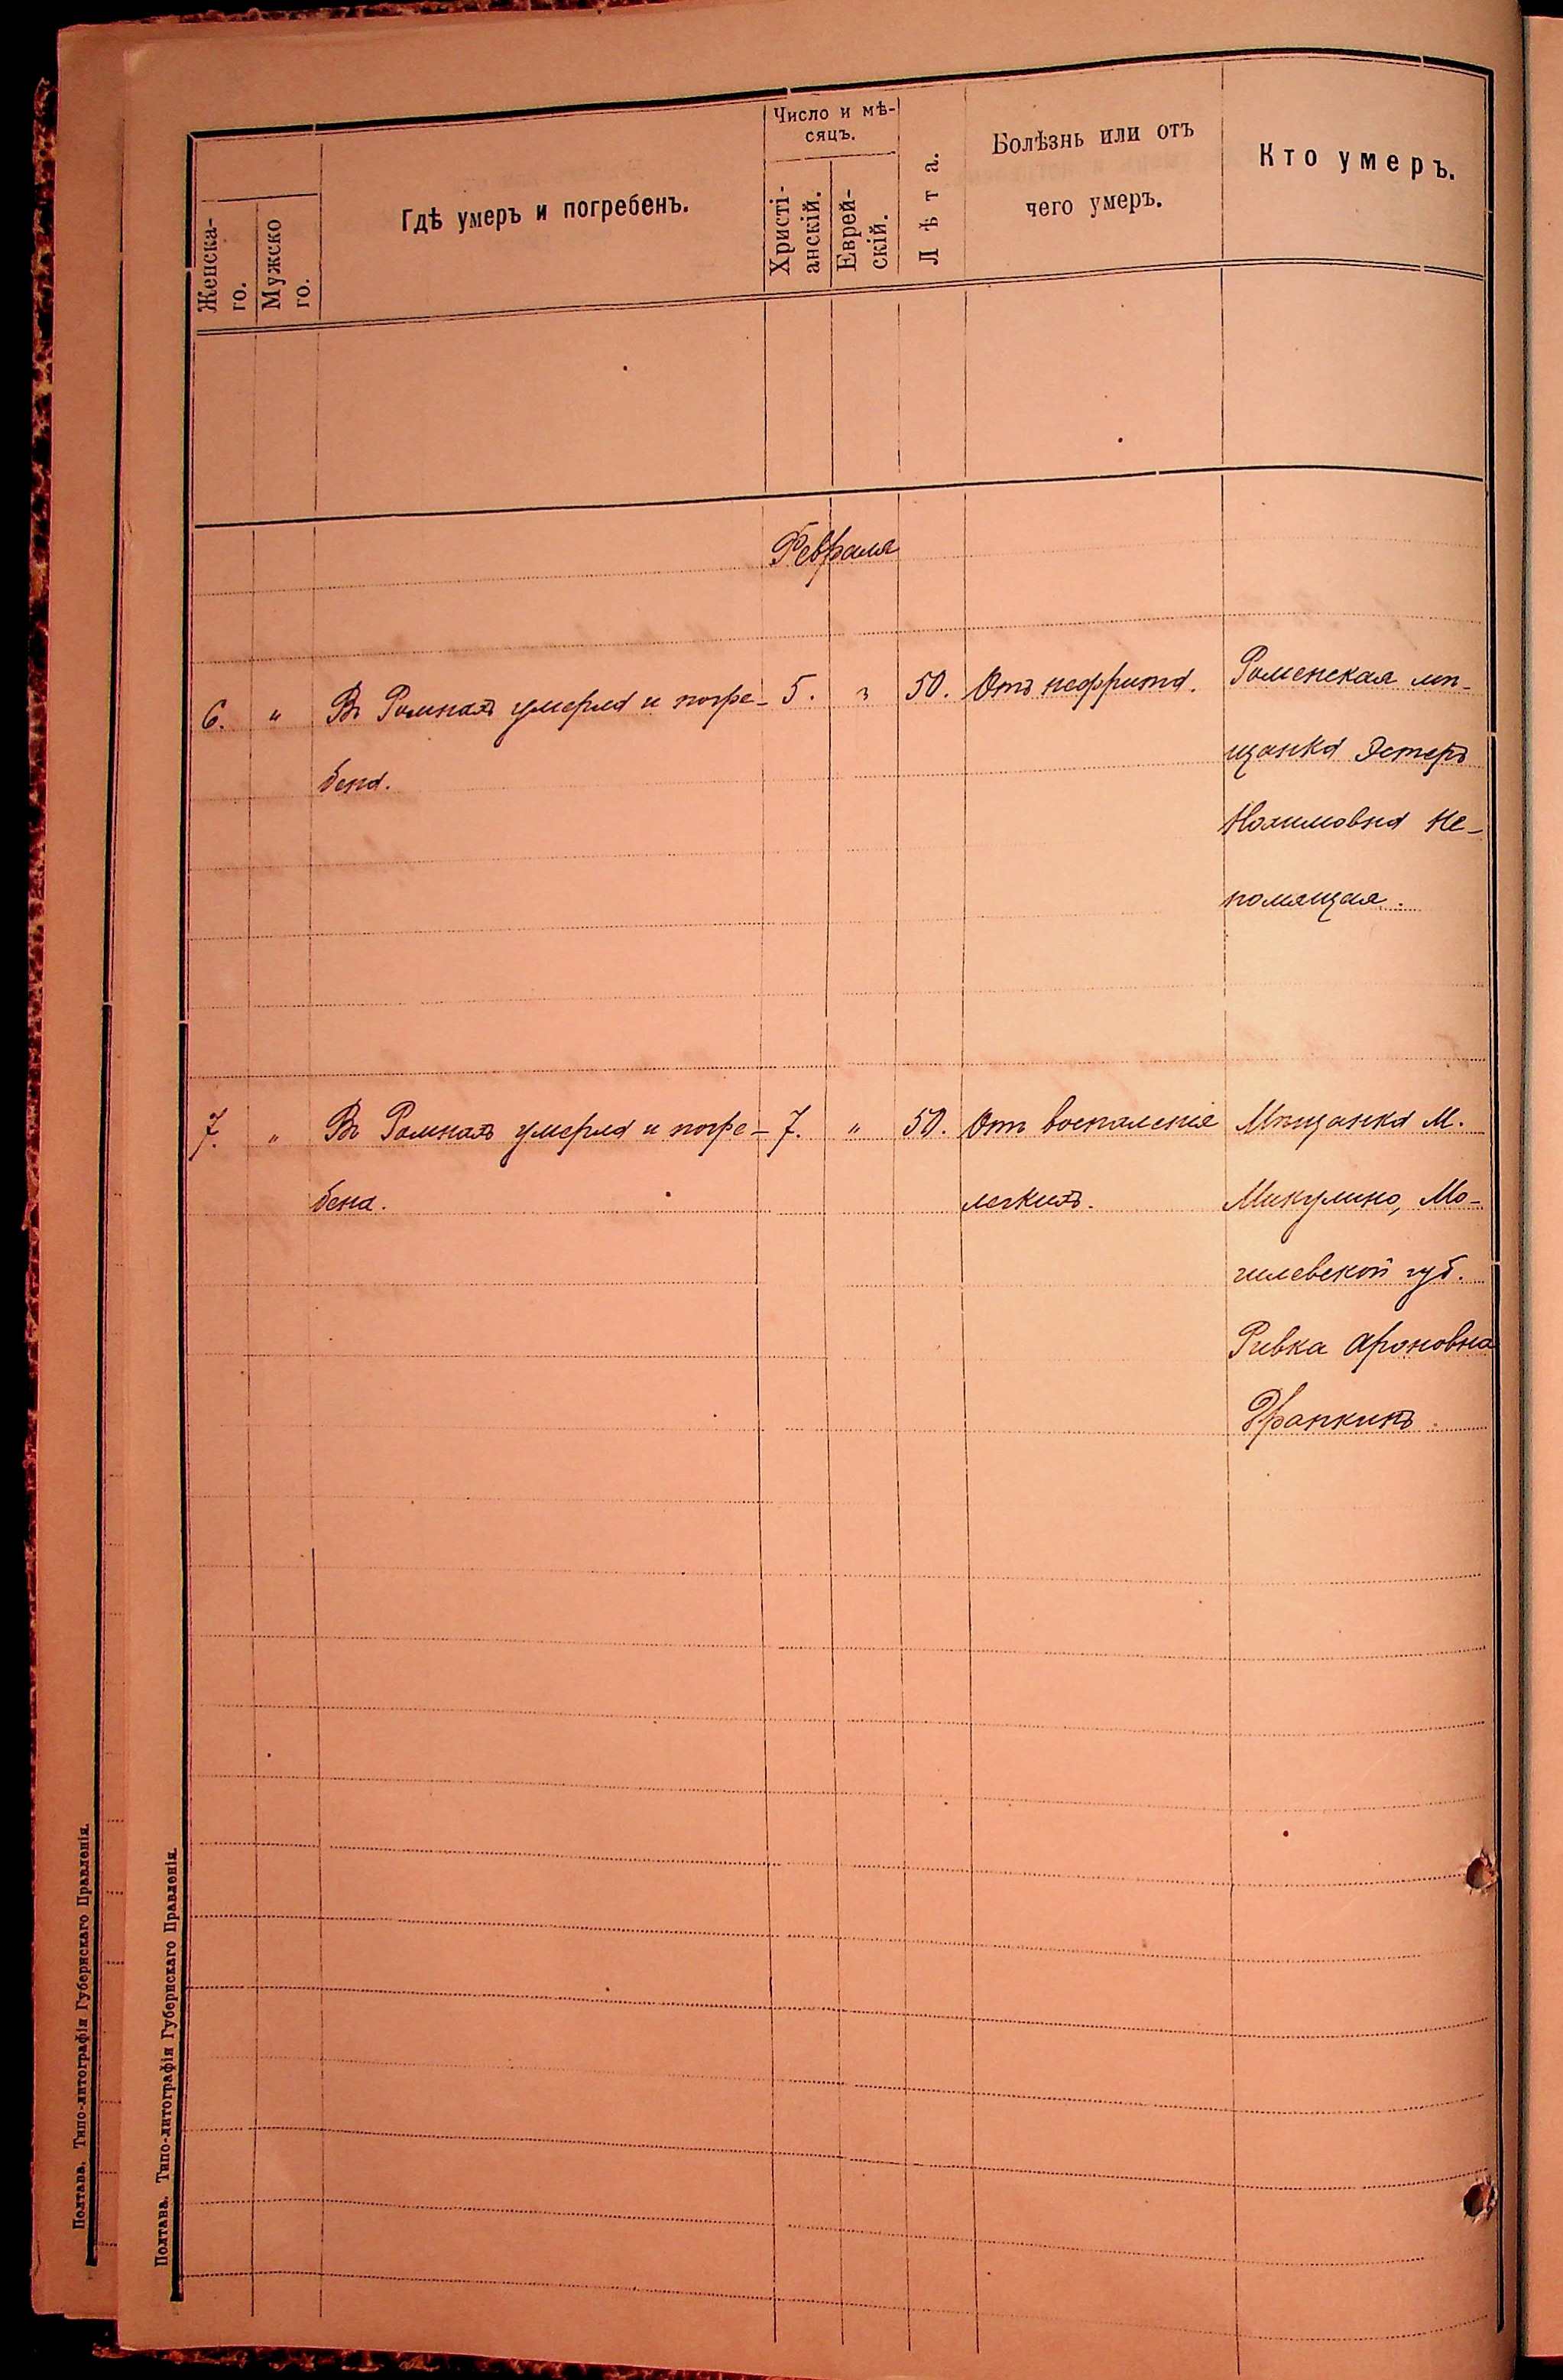 Женска-
го.
Мужско
го.
Гдѣ умеръ и погребенъ.
Число и мѣ-
сяцъ.
Христі-
анскій.
Еврей-
скій.
Лѣта.
Болѣзнь или отъ
чего умеръ.
Кто умеръ.
Февраля
6. " Въ Ромнахъ умерла и погре- 5. " 50. Отъ нефрита. Роменская мѣ-
бена. щанка Эстеръ
Нохимовна Не-
помящая.
7. " Въ Ромнахъ умерла и погре- 7. " 50. Отъ воспаленія Мѣщанка М.
бена. легкихъ. Микулино, Мо-
гилевской губ.
Ривка Ароновна
Франкинъ.
Полтава. Типо-литографія Губернскаго Правленія.
Полтава. Типо-литографія Губернскаго Правленія.